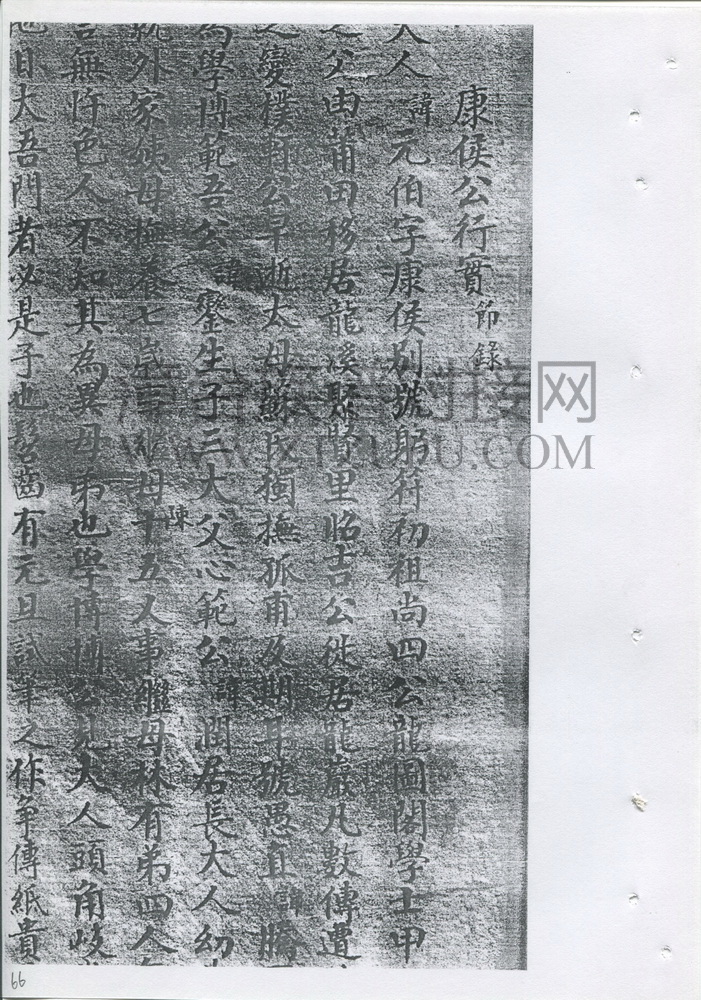 康侯公行實節錄
大人諱元伯字康侯別號躬符初祖尚四公龍圖閣學士甲
之父由莆田移居龍溪縣時里貽吉公徙居龍巖凡數傳遭
之變樸軒公早逝太母蘇氏獨撫孤甫及期耳號愚直諱騰
為學博範吾公諱鑾生子三大父心範公諱潤居長大人幼
就外家姨母撫養七歲事繼母陳十五又事繼母林有弟四人
言無忤色人不知其為異母弟也學博博公見大人頭角岐
他日大吾門者必是子也髫齒有元旦試筆之作爭傳紙貴
WWW.XTZUPU.COM
66